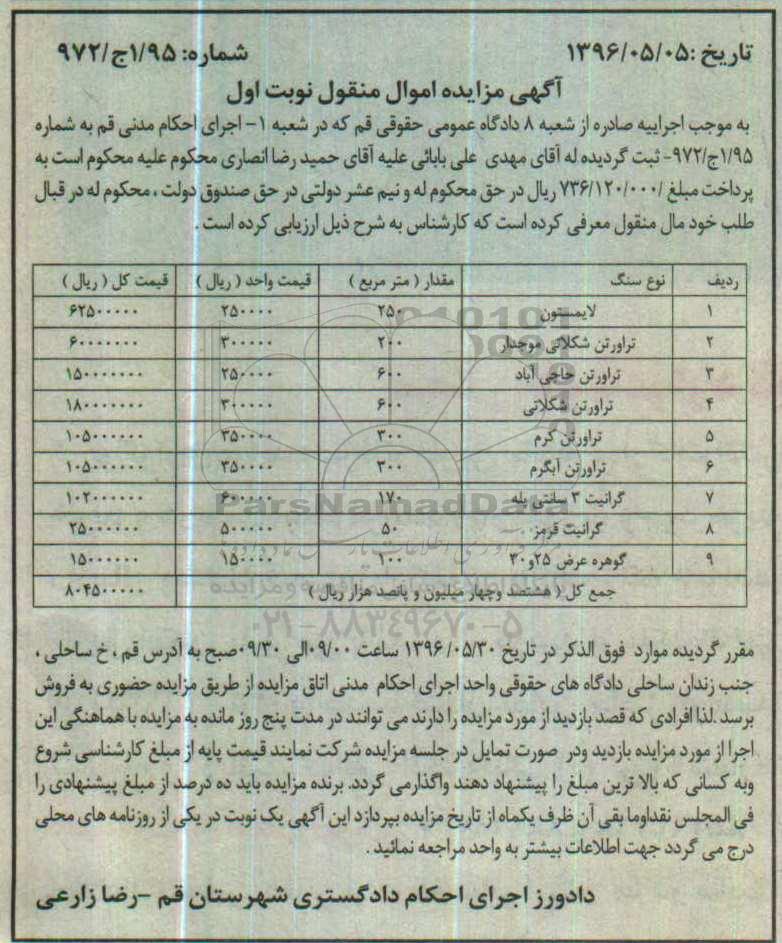 تاریخ :۱۳۹۶/۰۵/۰۵ شماره: ۱/۹۵ج/۹۷۲
آگهی مزایده اموال منقول نوبت اول
به موجب اجراییه صادره از شعبه ۸ دادگاه عمومی حقوقی قم که در شعبه ۱- اجرای احکام مدنی قم به شماره
۱/۹۵ج/۹۷۲- ثبت گردیده له آقای مهدی علی بابائی علیه آقای حمید رضا انصاری محکوم علیه محکوم است به
پرداخت مبلغ /۷۳۶/۱۲۰/۰۰۰ ریال در حق محکوم له و نیم عشر دولتی در حق صندوق دولت ، محکوم له در قبال
طلب خود مال منقول معرفی کرده است که کارشناس به شرح ذیل ارزیابی کرده است .
ردیف نوع سنگ مقدار ( متر مربع ) قیمت واحد ( ریال ) قیمت کل ( ریال )
۱ لایمستون ۲۵۰ ۲۵۰۰۰۰ ۶۲۵۰۰۰۰۰
۲ تراورتن شکلاتی موجدار ۲۰۰ ۳۰۰۰۰۰ ۶۰۰۰۰۰۰۰
۳ تراورتن حاجی آباد ۶۰۰ ۲۵۰۰۰۰ ۱۵۰۰۰۰۰۰۰
۴ تراورتن شکلاتی ۶۰۰ ۳۰۰۰۰۰ ۱۸۰۰۰۰۰۰۰
۵ تراورتن کرم ۳۰۰ ۳۵۰۰۰۰ ۱۰۵۰۰۰۰۰۰
۶ تراورتن آبگرم ۳۰۰ ۳۵۰۰۰۰ ۱۰۵۰۰۰۰۰۰
۷ گرانیت ۳ سانتی پله ۱۷۰ ۶۰۰۰۰۰ ۱۰۲۰۰۰۰۰۰
۸ گرانیت قرمز ۵۰ ۵۰۰۰۰۰ ۲۵۰۰۰۰۰۰
۹ گوهره عرض ۲۵و۳۰ ۱۰۰ ۱۵۰۰۰۰ ۱۵۰۰۰۰۰۰
جمع کل ( هشتصد وچهار میلیون و پانصد هزار ریال ) ۸۰۴۵۰۰۰۰۰
ParsNamadData
۰۲۱-۸۸۳۴۹۶۷۰-۵
مقرر گردیده موارد فوق الذکر در تاریخ ۱۳۹۶/۰۵/۳۰ ساعت ۰۹/۰۰الی ۰۹/۳۰صبح به آدرس قم ، خ ساحلی ،
جنب زندان ساحلی دادگاه های حقوقی واحد اجرای احکام مدنی اتاق مزایده از طریق مزایده حضوری به فروش
برسد .لذا افرادی که قصد بازدید از مورد مزایده را دارند می توانند در مدت پنج روز مانده به مزایده با هماهنگی این
اجرا از مورد مزایده بازدید ودر صورت تمایل در جلسه مزایده شرکت نمایند قیمت پایه از مبلغ کارشناسی شروع
وبه کسانی که بالا ترین مبلغ را پیشنهاد دهند واگذارمی گردد. برنده مزایده باید ده درصد از مبلغ پیشنهادی را
فی المجلس نقداوما بقی آن ظرف یکماه از تاریخ مزایده بپردازد این آگهی یک نوبت در یکی از روزنامه های محلی
درج می گردد جهت اطلاعات بیشتر به واحد مراجعه نمائید .
دادورز اجرای احکام دادگستری شهرستان قم -رضا زارعی